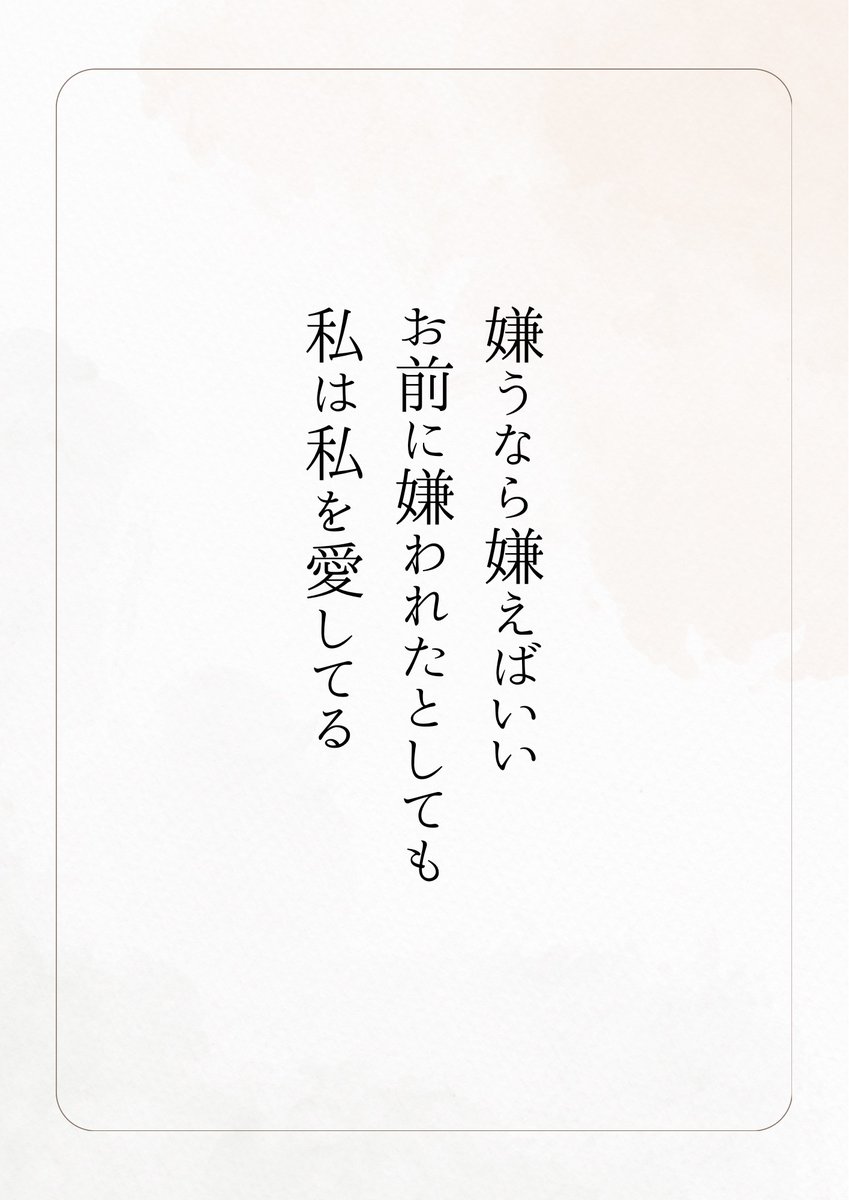 嫌うなら嫌えばいい
お前に嫌われたとしても
私は私を愛してる